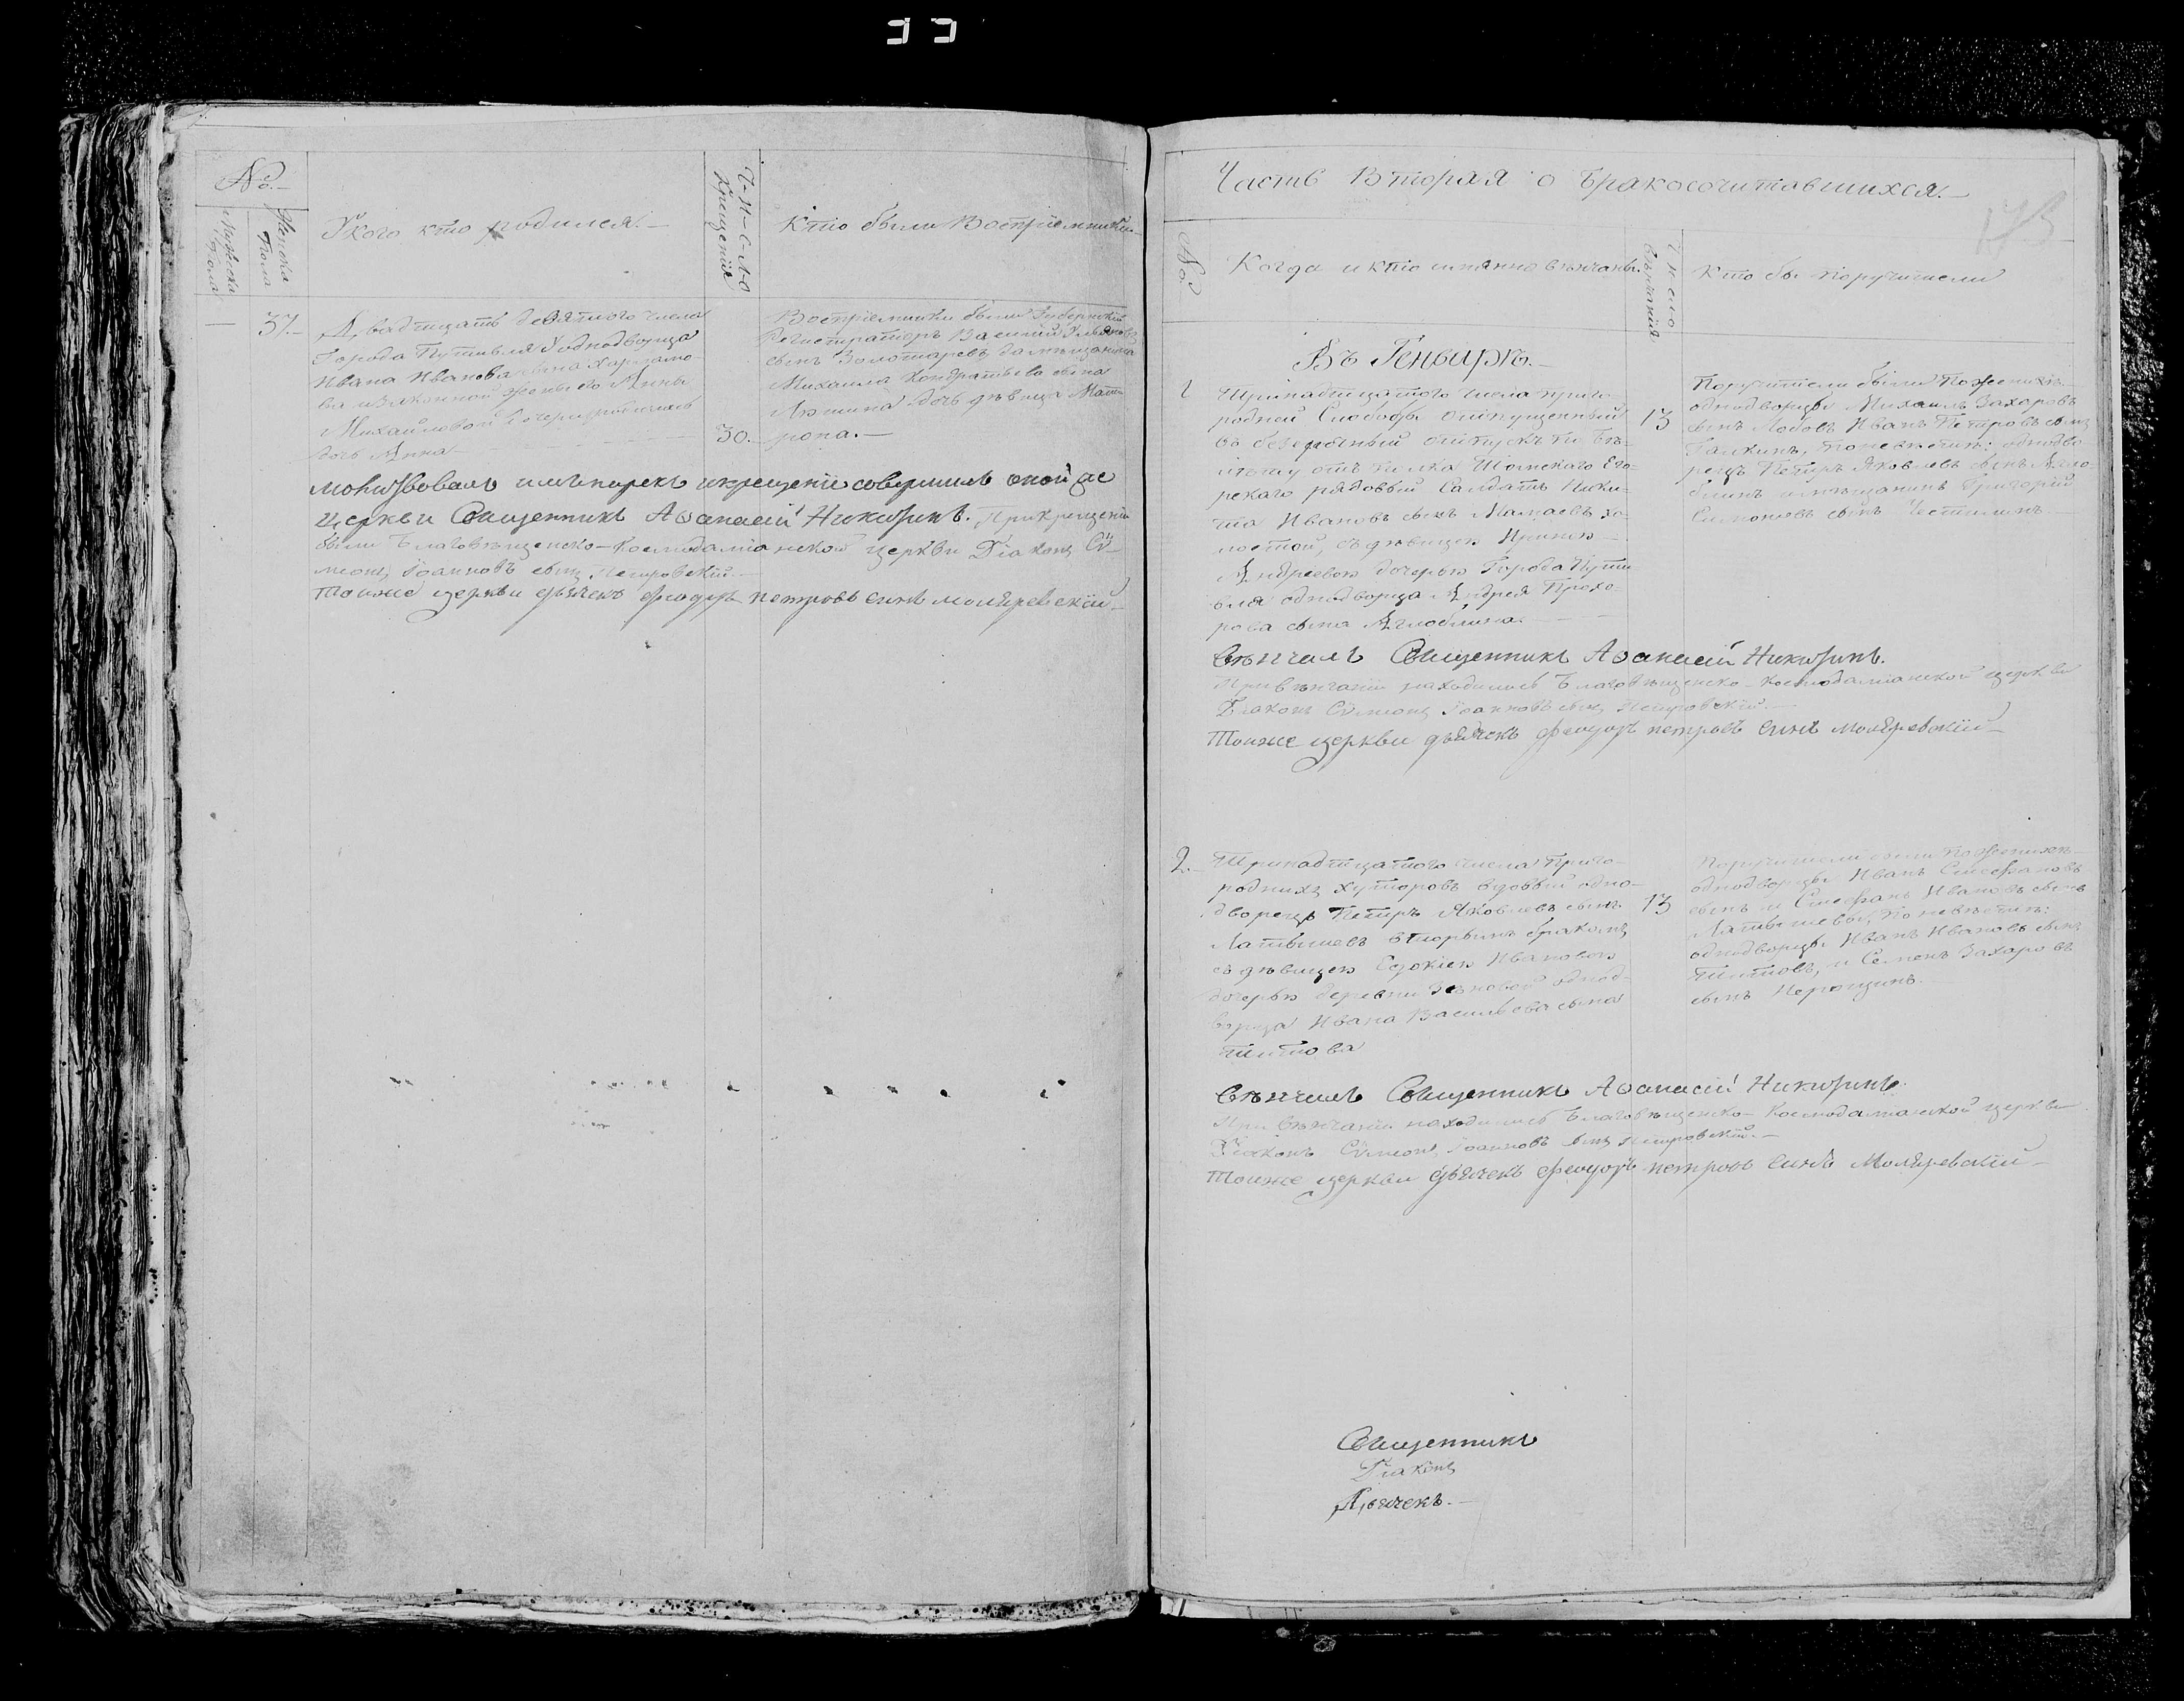 №
Мужеска Пола
Женска Пола
У кого кто родился.
Ч-И-С-Л-О Крещенія
Кто были Воспріемники
37.
Двадцать девятого числа
Города Путивля У однодворца
Ивана Иванова сына
законной жены его Анны
Михайловой дочери родилась
дочь Анна
30.
Воспріемники были Губернскій
Регистраторъ Василій
сынъ Золотаревъ да мещанина
Михаила Кондратьева сына
дочь девица Мат
рона.
молитвовалъ имянарекъ и крещеніе совершилъ оной же
церкви Священникъ Аѳанасій Никитинъ. При крещеніи
были Благовѣщенско-Космодаміанской церкви Діаконъ Сѵ
меонъ Іоанновъ сынъ Петровскій.
Тоиже церкви дьячекъ феодоръ петровъ синъ
Часть Вторая о бракосочитавшихся.
173
№
Когда и кто имянно венчаны.
Число венчанія
Кто бы поручители
Въ Генваръ.
1
Тринадцатого числа приго
родной Слободы отпущенный
въ безсрочный отпускъ по би
лету отъ полка Томскаго Еге
рскаго рядовый Салдатъ Ники
та Ивановъ сынъ Мамаевъ хо
лостой, съ девицею Ириною
Андреевою дочерью Города Пути
вля однодворца Андрея Прохо
рова сына Аглоблина.
13
Поручители были По женихе
однодворцы Михаилъ Захаровъ
сынъ Лобовъ Иванъ Петровъ сынъ
Галкинъ, По невестѣ: однодво
рецъ Петръ Яковлевъ сынъ Агло
блинъ и мещанинъ Григорій
Симоновъ сынъ
Вѣнчалъ Священникъ Аѳанасій Никитинъ.
При венчаніи находились Благовѣщенско-Космодаміанской церкви
Діаконъ Сѵмеонъ Іоанновъ сынъ Петровскій.
Тоиже церкви дьячекъ феодоръ петровъ синъ
2.
Тринадцатого числа Приго
родныхъ хуторовъ вдовый одно
дворецъ Петръ Яковлевъ сынъ
Латышевъ вторымъ бракомъ
съ девицею Евдокіею Ивановою
дочерью деревни однод
ворца Ивана Васильева сына
Титова
13
Поручители были По женихе
однодворцы Иванъ Стефановъ
сынъ и Стефанъ Ивановъ сынъ
Латышевы, По невестѣ:
однодворцы Иванъ Ивановъ сынъ
Титовъ, и Семенъ Захаровъ
сынъ
Вѣнчалъ Священникъ Аѳанасій Никитинъ.
При венчаніи находились Благовѣщенско-Космодаміанской церкви
Діаконъ Сѵмеонъ Іоанновъ сынъ Петровскій.
Тоиже церкви дьячекъ феодоръ петровъ синъ
Священникъ
Діаконъ
Дьячекъ.